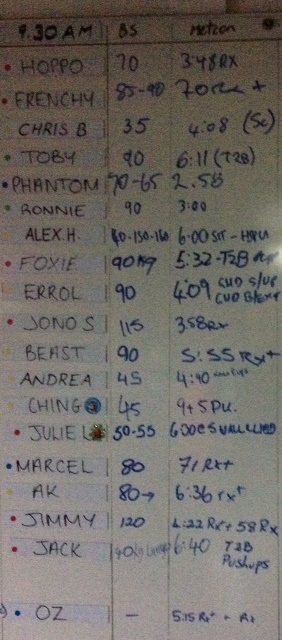 9.30 AM BS Metcon
HOPPO 70 3:48RX
FRENCHY 85-90 +
CHRIS B 35 4:08 (Sc)
TOBY 90 6:11 (T2B)
PHANTOM 70-65 2.58
RONNIE 90 3:00
ALEX.H. -150-160 6:00
FOXIE 90kg 5:32-T2B
ERROL 90 4:09
JONO S 115 358Rx
BEAST 90 5:55 Rx+
ANDREA 45 4:40
CHING 45 9+5 PU.
JULIE L 50-55 600
MARCEL 80 71 Rx+
AK 80→ 6:36 rx+
JIMMY 120 4:22 Rx+ 58 Rx
JACK 40 6:40 T2B
Pushups
OZ - 5:15 Rx+